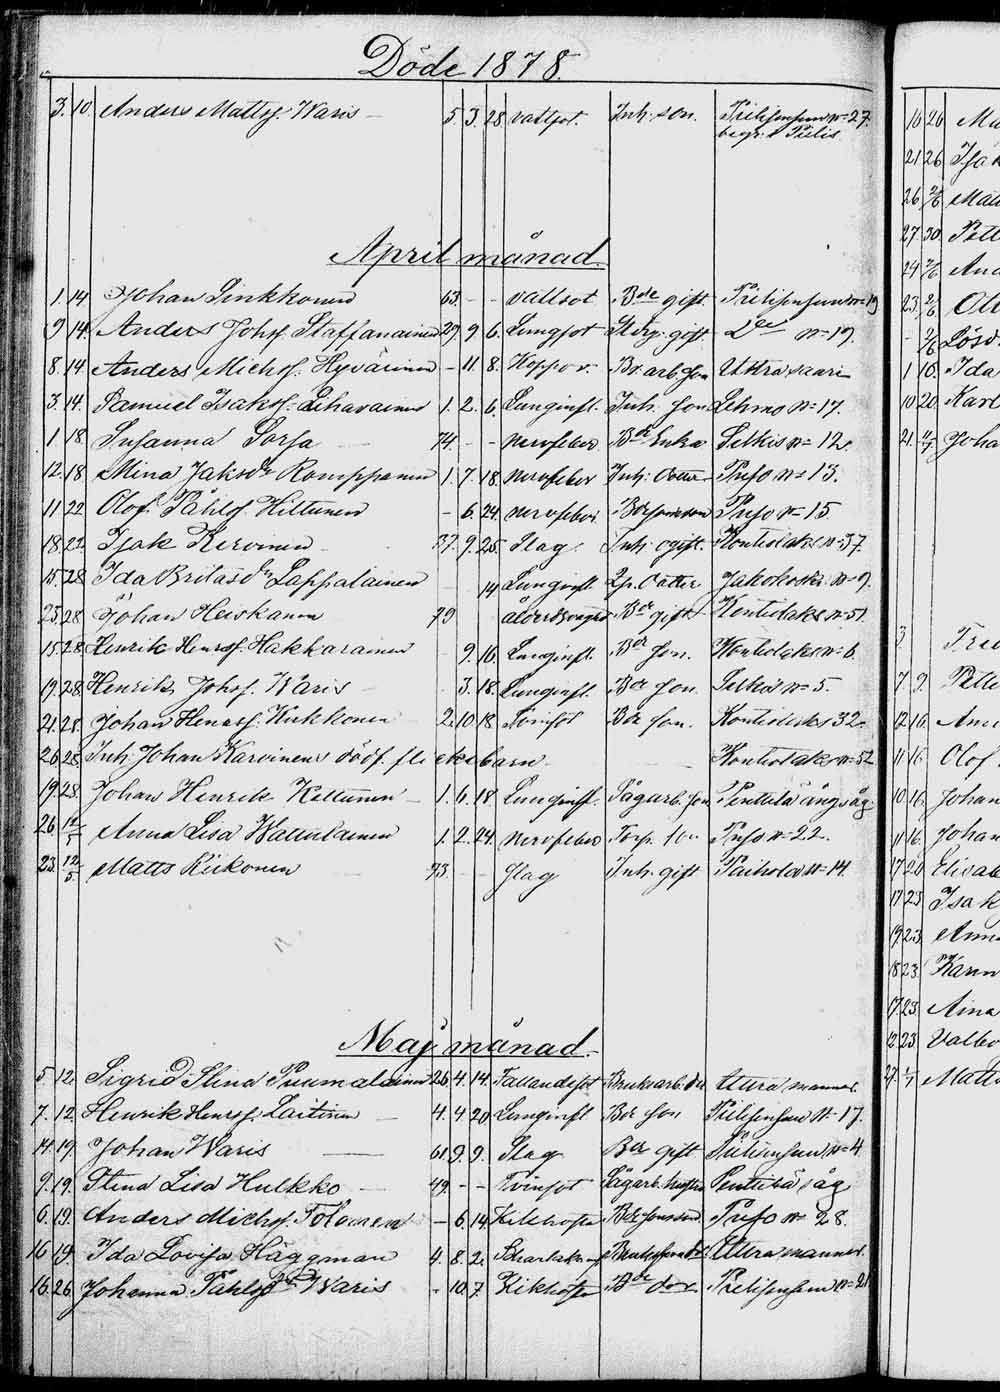 Döde 1878.
3. 10. Anders Mattsf. Waris 5. 3. 28. vattsot. Inh. son. Pielisensuu № 27.
begr. i Pielis
April månad.
1. 14. Johan Sinkkonen 63. - - vattsot Bde gift Pielisensuu № 19
9 14. Anders Johsf. Staffanainen 29. 9 6. Lungsot gift. Do № 19.
8. 14. Anders Michsf. Hyvärinen - 11. 8. Koppor. Br. arb. son Uttrasaari
3. 14. Samuel Isaksf. Lihavainen 1. 2. 6. Lunginfl. Inh. son Lehmo № 17.
1. 18. Susanna Sorsa 74. - - nervfeber Bde Enka Selkie № 12.
12. 18 Mina Jaksdr Romppanen 1. 7. 18. nervfeber Inh. dotter Puso № 13.
11 22. Olof Påhlsf. Hiltunen - 6. 24. nervfeber. Puso № 15.
18. 22. Isak Kervinen 37. 9. 25. Slag. Inh. ogift. Kontiolaks № 37.
15. 28. Ida Britasdr Lappalainen 14 Lunginfl. Lp. dotter Jakokoski № 9.
23. 28. Johan Heiskanen 79 Bde gift Kontiolaks № 51.
15. 28. Henrik Henrsf. Hakkarainen 9. 16. Lunginfl. Bde son. Kontiolaks № 6.
19. 28. Henrik Johsf. Waris 3. 18. Lunginfl. Bde son. Selkie № 5.
21. 28. Johan Henrsf. Kukkonen 2. 10. 18 Tvinsot Bde son. Kontiolaks 32.
26. 28. Inh. Johan Karvinens dödf. flickebarn Kontiolaks № 52
19. 28. Johan Henrik Kettunen 1. 6. 18 Lunginfl. Sågarb. son Pentilä ångsåg
26. 12/5 Anna Lisa Wattulainen 1. 2. 24. nervfeber Torp. Puso № 22.
23. 12/5 Matts Riikonen 73. - - slag Inh. gift Paihola № 14.
Maj månad.
5. 12. Sigrid Stina Puumalainen 26. 4. 14. Fallandesot Bruksarb. Utra
7. 12. Henrik Henrsf. Laitinen 4. 4. 20. Lunginfl Bde son Pielisensuu № 17.
14. 19. Johan Waris 61. 9. 9. Slag Bde gift Pielisensuu № 4
9. 19. Stina Lisa Hulkko 49. - - Tvinsot Sågarb. hustru Pentilä såg
6. 19. Anders Michsf. Tolonen - 6. 14. Kikhosta Puso № 28.
16 19. Ida Lovisa Häggman 4. 8. 2. Utra
16. 26. Johanna Påhlsdr Waris - 10. 7. Kikhosta Bde dotter Pielisensuu № 21
16 26
21 26
26 2/6
27. 30.
24 2/6
23. 2/6
1 16. Ida
10 20. Karl
21. Joha
3
7 9.
12 16.
11 16. Olof
10 16. Johan
11 16. Johan
17 20
17 23 Isak
19 23.
18 23. Karin
17. 23. Aina
12 23 Valbo
27. 1/7 Matts